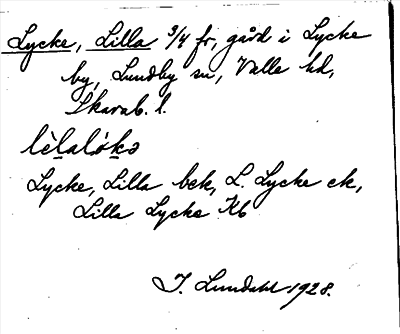 Lycke, Lilla 3/4 fr, gård i Lycke
by, Lundby sn, Valle hd,
Skarab. l.
lèlalókə
Lycke, Lilla bck, L. Lycke ek,
Lilla Lycke Kb
I. Lundahl 1928.